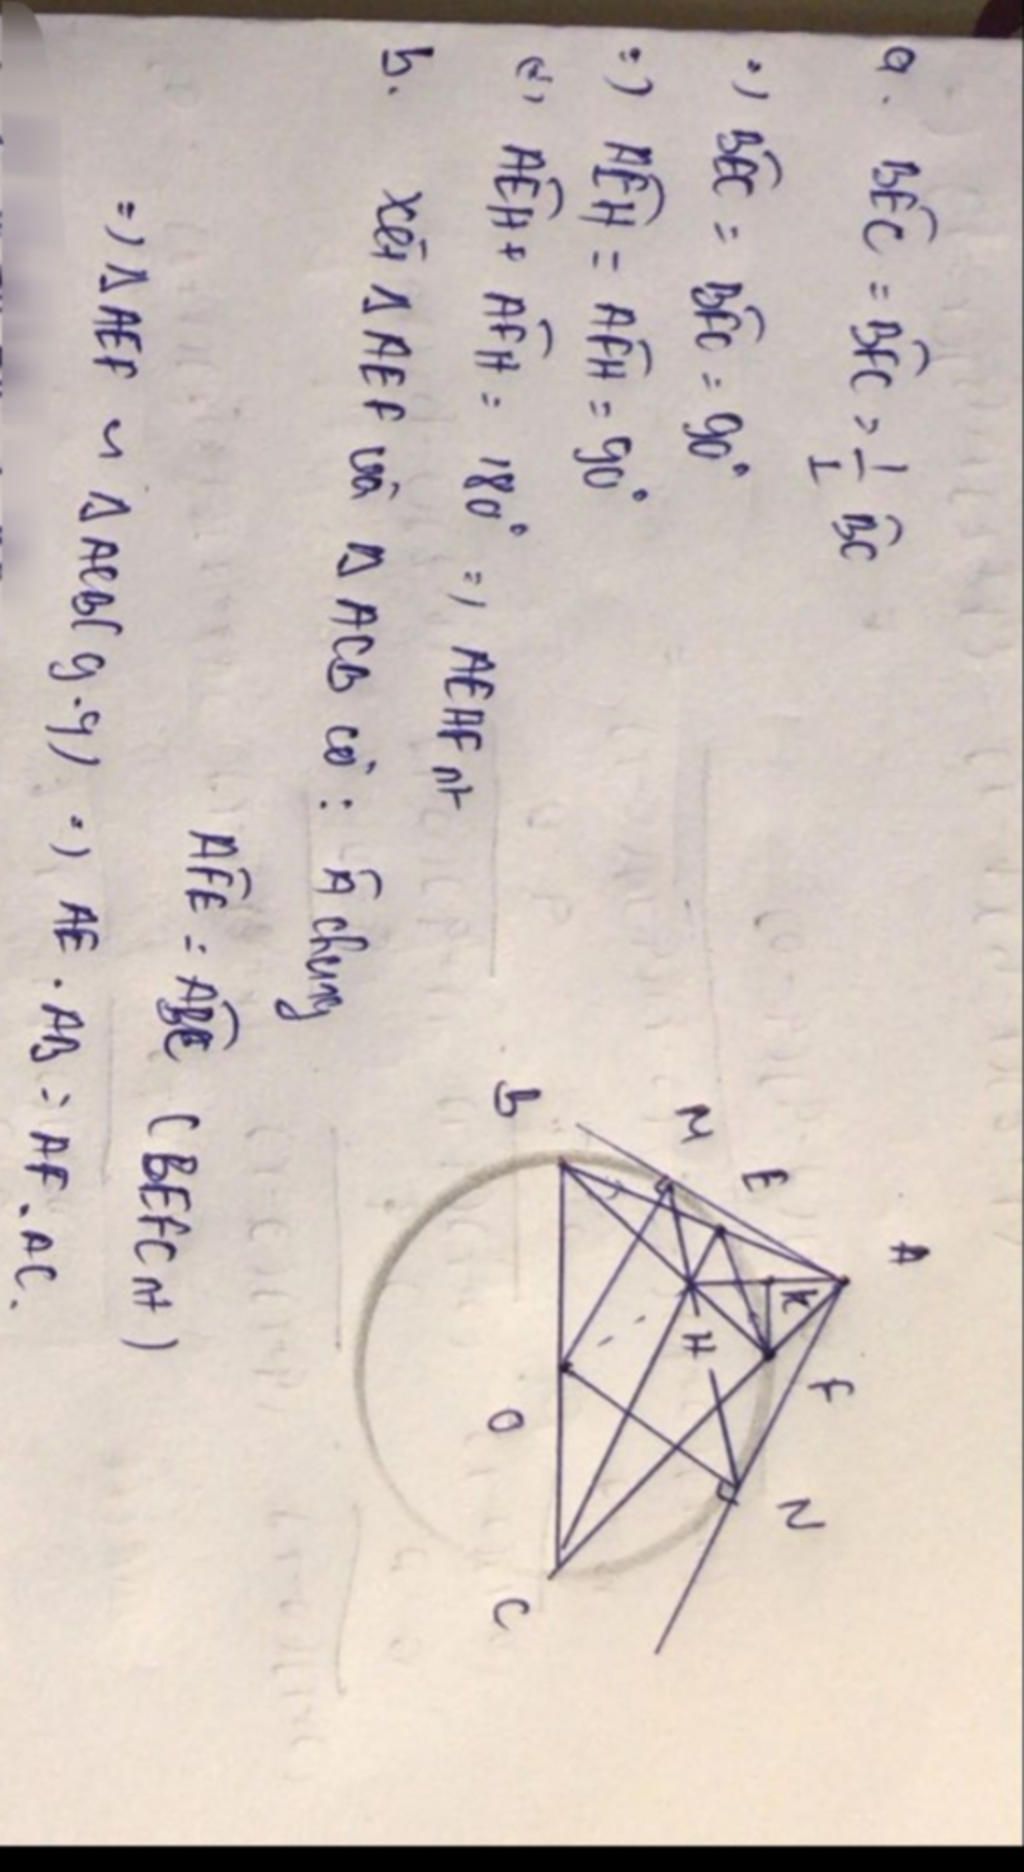 a. BEC = BFC = 1/2 BC
=) BEC = BFC = 90°
=) AEH = AFH = 90°
=) AEH + AFH = 180° =) AEHF nt
b. xét Δ AEF và Δ ACB có: A chung
AFE = ABC (BEFC nt)
=) Δ AEF ~ Δ ACB (g.g) =) AE . AB = AF . AC.
A
E
K
F
M
H
N
B
O
C